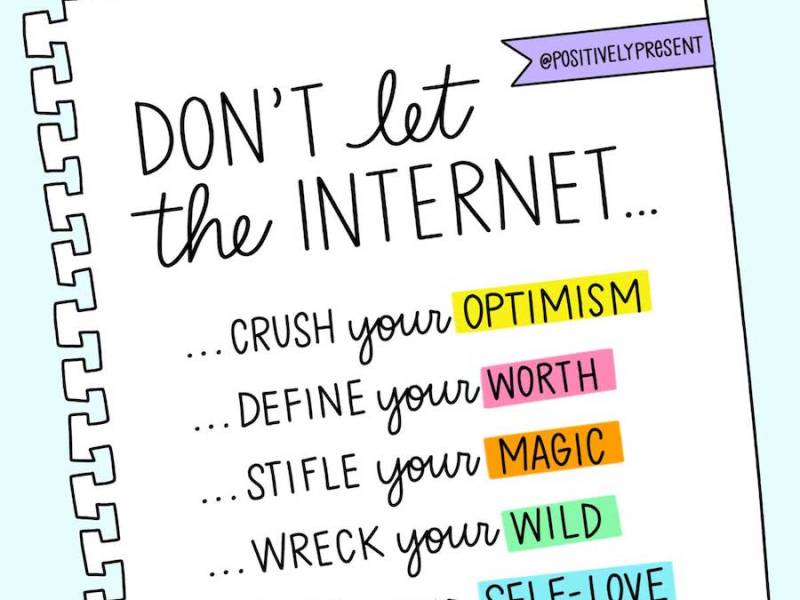 @POSITIVELYPRESENT
DON'T let
the INTERNET...
...CRUSH your OPTIMISM
...DEFINE your WORTH
...STIFLE your MAGIC
...WRECK your WILD
SELF-LOVE